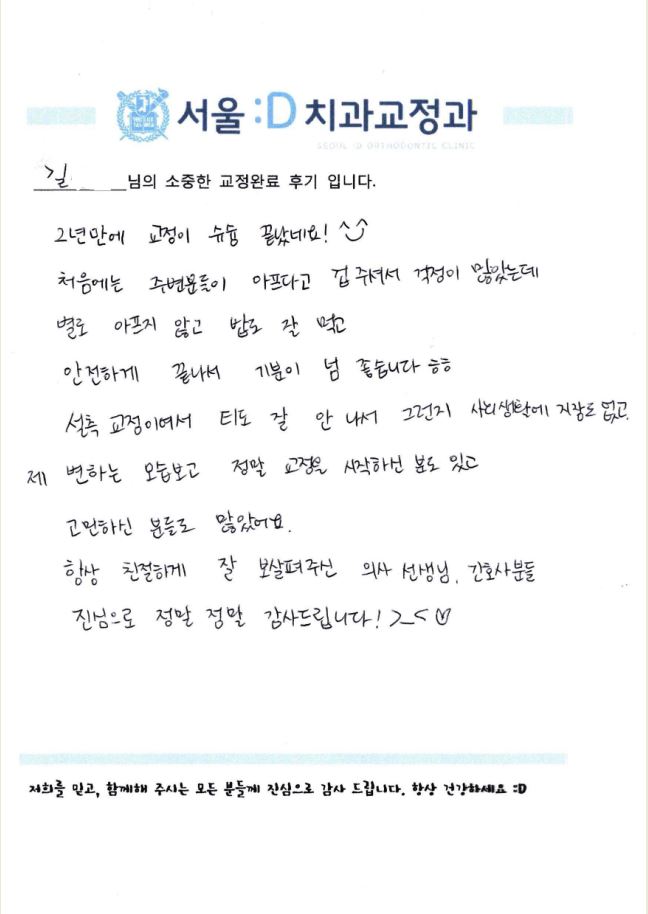 서울 :D 치과교정과
SEOUL :D ORTHODONTIC CLINIC
길____님의 소중한 교정완료 후기 입니다.
2년만에 교정이 슈슝 끝났네요! ^_^
처음에는 주변분들이 아프다고 겁 주셔서 걱정이 많았는데
별로 아프지 않고 밥도 잘 먹고
안전하게 끝나서 기분이 넘 좋습니다 ㅎㅎ
설측 교정이여서 티도 잘 안 나서 그런지 사회생활에 지장도 없고
제 변하는 모습보고 정말 교정을 시작하신 분도 있고
고민하신 분들도 많았어요.
항상 친절하게 잘 보살펴주신 의사 선생님, 간호사분들
진심으로 정말 정말 감사드립니다! >_< ♡
저희를 믿고, 함께해 주시는 모든 분들께 진심으로 감사 드립니다. 항상 건강하세요 :D